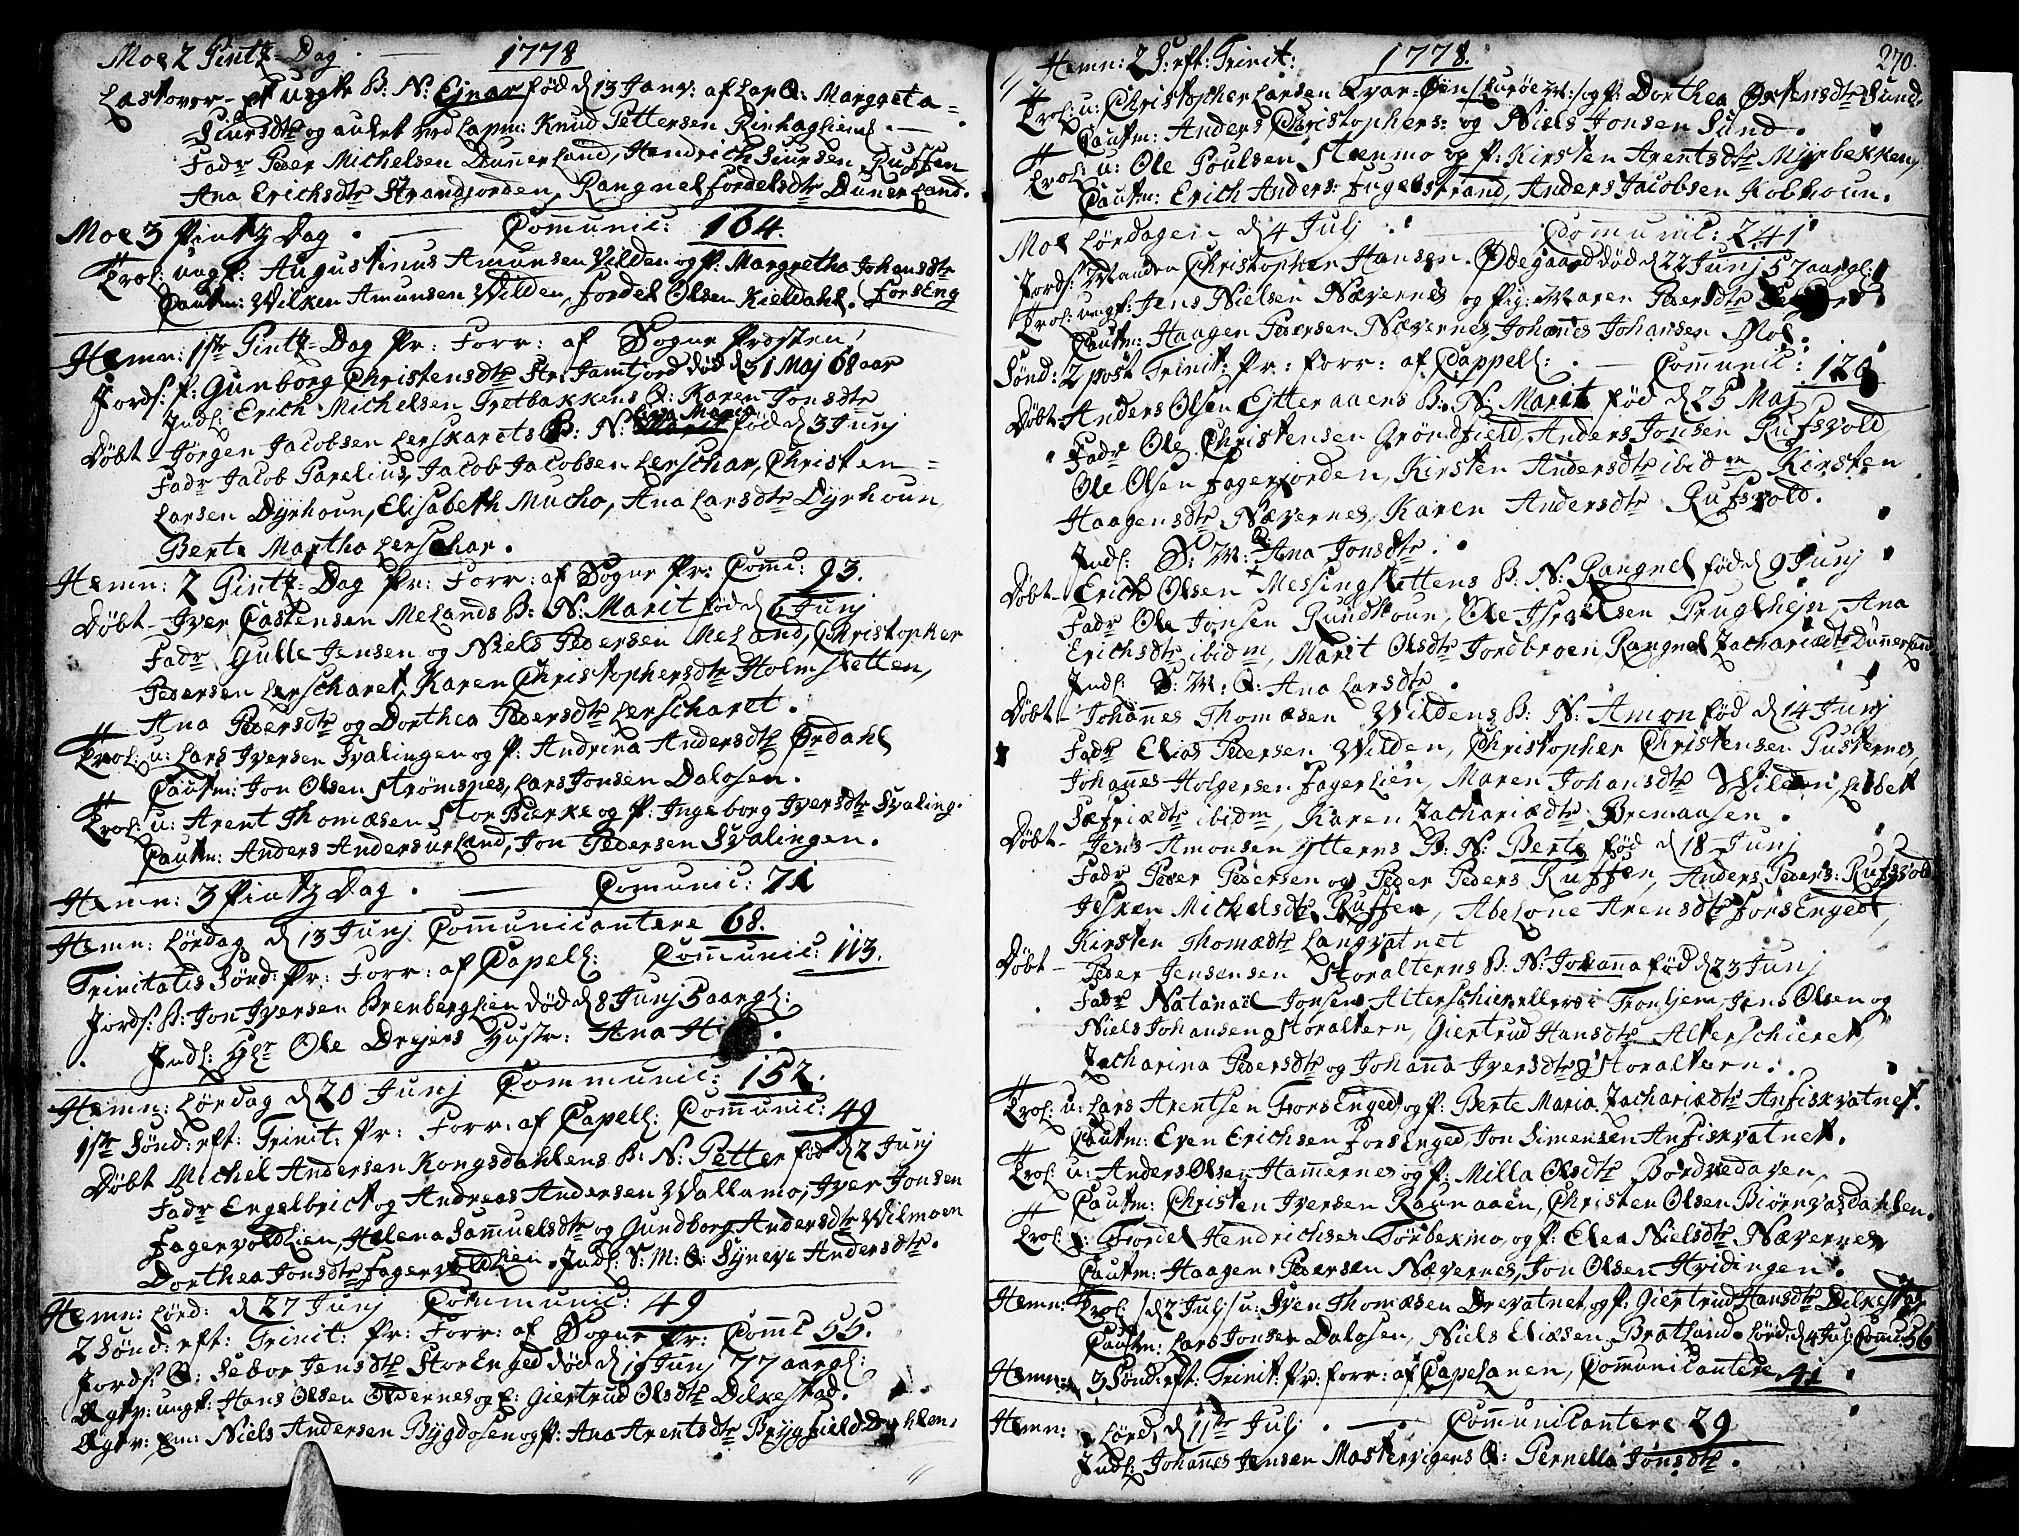 Moe 2 Pintz-Dag 1778
Løstøver et uægte B: N: Ejnar fød d 13 Janv: af Lap Q: Margreta
Siursdtr og avlet ved Lapm: Knud Pettersen
Fadr Peder Michelsen Dunnerland, Hendrich Siursen Ruffen
Ana Erichsdtr Strandjorden, Rangnel Fordelsdtr Dunnerland.
Moe 3 Pintz Dag. Communic: 164.
Trol: ungk: Augustinus Amunsen Vilden og P: Margretha Johansdtr ForsEng
Cautm: Wilken Amunsen Wilden, Fordel Olsen Kieldahl.
Hemn: 1ste Pintz-Dag Pr: Forr: af Sogne Prosten
Jords: P: Gunborg Christensdtr Str: Jamtjord død d 31 Maj 68 aar
Indl: Erich Michelsen Gretbakkens Q: Karen Jonsdtr
Døbt - Jørgen Jacobsen Lerskarets B: N: fød d 3 Junj
Fadr Jacob Parelius, Jacob Jacobsen Lerschar, Christen
Larsen Dyrhoun, Elisabeth Mucho, Ana Larsdtr Dyrhoun,
Berte Martha Lerschar.
Hemn: 2 Pintz-Dag Pr: Forr: af Sogne Pr: Comu: 93.
Døbt - Iver Castensen Melands B: N: Marit fød d 6 Junj
Fadr Gulle Jensen og Niels Pedersen Meland, Christopher
Pedersen Lerscharet, Karen Christophersdtr Holmsletten,
Ana Pedersdtr og Dorthea Pedersdtr Lerscharet.
Trol: u: Lars Iversen Svalingen og P: Andrina Andersdtr Ørdahl
Cautm: Jon Olsen Strømsnes, Lars Jonsen Dalosen.
Trol: u: Arent Thomæsen StorBierke og P: Ingeborg Iversdtr Svaling.
Cautm: Anders Andersen Urland, Jon Pedersen Svalingen.
Hemn: 3 Pintz Dag. Comunic: 71
Hemn: Lørdag d 13 Junj Communicantere 68.
Trinitatis Sønd: Pr: Forr: af Capell: Communic: 113.
Jords: B: Jon Iversen Brenberglien død d 8 Junj 5 aar gl:
Indl: Hr Ole Drejers Hustr: Ana
Hemn: Lørdag d 20 Junj Communic: 152.
1ste Sønd: eft: Trinit: Pr: Forr: af Capell: Communic: 49
Døbt Michel Andersen Kongsdahlens B: N: Petter fød d 2 Junj
Fadr Engelbrict og Andreas Andersen Wallamo, Iver Jonsen
Fagervoldlien, Helena Samuelsdtr og Gundborg Andersdtr Wilmoen
Dorthea Jonsdtr Fagervoldlien. Indl: S: M: Q: Syneve Andersdtr.
Hemn: Lørd: d 27 Junj Communic: 49
2 Sønd: eft: Trinit: Pr: Forr: af Sogne Pr: Comc 55.
Jords: Q: Sebor Jensdtr StorEnged død d 16 Junj 77 aar gl:
Ægtv: ungk: Hans Olsen Oldernes og P: Giertrud Olsdtr Dilkestad.
Ægtv: Em: Niels Andersen Bygdosen og P: Ana Arentsdtr Brygfield Dahlen
Hemn: 2 S: eft: Trinit: 1778. 270.
Trol: u: Christopher Larsen Qvar-Øen /Lurøe M:/ og P: Dorthea Østensdtr Sund
Cautm: Anders Christophers: og Niels Jonsen Sund.
Trol: u: Ole Poulsen Stenmo og P: Kirsten Arentsdtr Myrbekken
Cautm: Erich Anders: Fugelstrand, Anders Jacobsen Kobhoun.
Moe Lørdagen d 4 Julj Communic: 241
Jords: Manden Christopher Hansen Ødegaard død d 22 Junj 57 aar gl:
Trol: ungk: Jens Nielsen Nævernes og Pig: Maren Pedersdtr
Cautm: Haagen Pedersen Nævernes, Johanes Johansen Moe.
Sønd: 2 post Trinit: Pr: forr: af Cappell: Communic: 126
Døbt - Anders Olsen Ytteraaens B: N: Marit fød d 25 Maj
Fadr Ole Christensen Grøndfield, Anders Jonsen Rufsvold
Ole Olsen Fagerjorden, Kirsten Andersdtr ibidm Kirsten
Haagensdtr Nævernes, Karen Andersdtr Rufsvold.
Indl: S: M: Q: Ana Jonsdtr.
Døbt - Erich Olsen Messingslettens B: N: Rangnel fød d 9 Junj
Fadr Ole Jonsen Rundhoun, Ole Israelsen Pruglhejn, Ana
Erichsdtr ibidm, Marit Olsdtr Jordbroen, Rangnel Zachariædtr Dunnerland
Indl: S: M: Q: Ana Larsdtr.
Døbt - Johannes Thomæsen Wildens B: N: Amon fød d 14 Junj
Fadr Elias Pedersen Wilden, Christopher Christensen Pusternes,
Johannes Holgersen Fagerlien, Maren Johansdtr Wilden, Lisbet
Safriædtr ibidm, Karen Zachariædtr Bremaasen.
Døbt - Jens Amonsen Ytterns B: N: Berte fød d 18 Junj
Fadr Peder Pedersen og Peder Peders Ruffen, Anders Peders: Rufsvold
Jesken Michelsdtr Ruffen, Abelone Arensdtr ForsEnget,
Kirsten Thomædtr Langvatnet
Døbt - Peder Jensen Storalterns B: N: Johana fød d 23 Junj
Fadr Natanaël Jonsen Alterschier ellers i Tronhjem, Jens Olsen og
Niels Johansen Storaltern, Giertrud Hansdtr Alterschieret,
Zacharina Pedersdtr og Johanna Iversdtr Storaltern.
Trol: u: Lars Arentsen ForsEnged og P: Berte Maria Zachariædtr Anfiskvatnet.
Cautm: Even Erichsen ForsEnged, Jon Simensen Anfiskvatnet.
Trol: u: Anders Olsen Hamernes og P: Milla Olsdtr Bordvedaven,
Cautm: Christen Iversen Raunaaen, Christen Olsen Biørnvasdahlen.
Trol: u: Fordel Hendrichsen Torbekmo og P: Elen Nielsdtr Nævernes
Cautm: Haagen Pedersen Nævernes, Jon Olsen Hvidingen.
Hemn: Trol: /d 2 Julj/ u: Iven Thomæsen Drevatnet og P: Giertrud Hansdtr Dilkestad
Cautm: Lars Jonsen Dalosen, Niels Eliæsen Bratland. Lørd: d 4 Julj Comu: 56
Hemn: 3 Sønd: eft: Trinit: Pr: forr: af Capelanen, Communicantere 41.
Hemn: Lørd: d 11te Julj. Communicantere 29
Indl: Johannes Jensen Mastervigens Q: Pernella Jonsdtr.